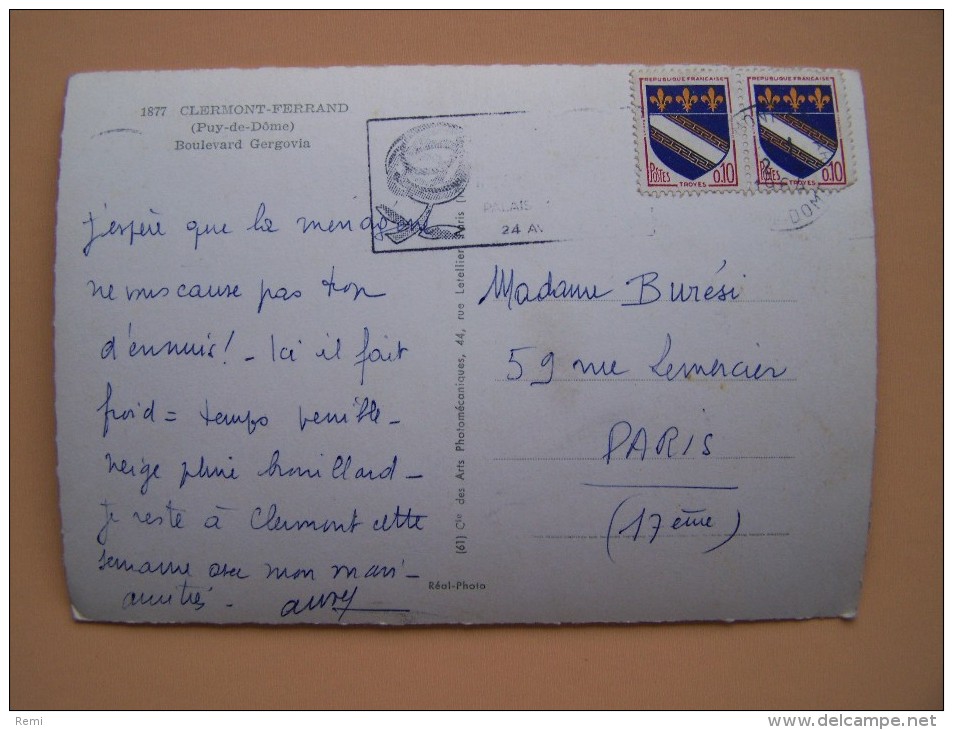 1877 CLERMONT-FERRAND
(Puy-de-Dôme)
Boulevard Gergovia
REPUBLIQUE FRANCAISE
POSTES
0.10
TROYES
REPUBLIQUE FRANCAISE
POSTES
0.10
TROYES
PALAIS
24 AV
DOM
j'espère que la
ne vous cause pas trop
d'ennuis! - Ici il fait
froid = temps pénible -
neige pluie brouillard -
je reste à Clermont cette
semaine avec mon mari -
amitiés -
(61) Cie des Arts Photomécaniques, 44, rue Letellier, Paris
Réal-Photo
Madame Burési
59 rue Lemercier
PARIS
(17ème)
Remi
http://www.delcampe.net